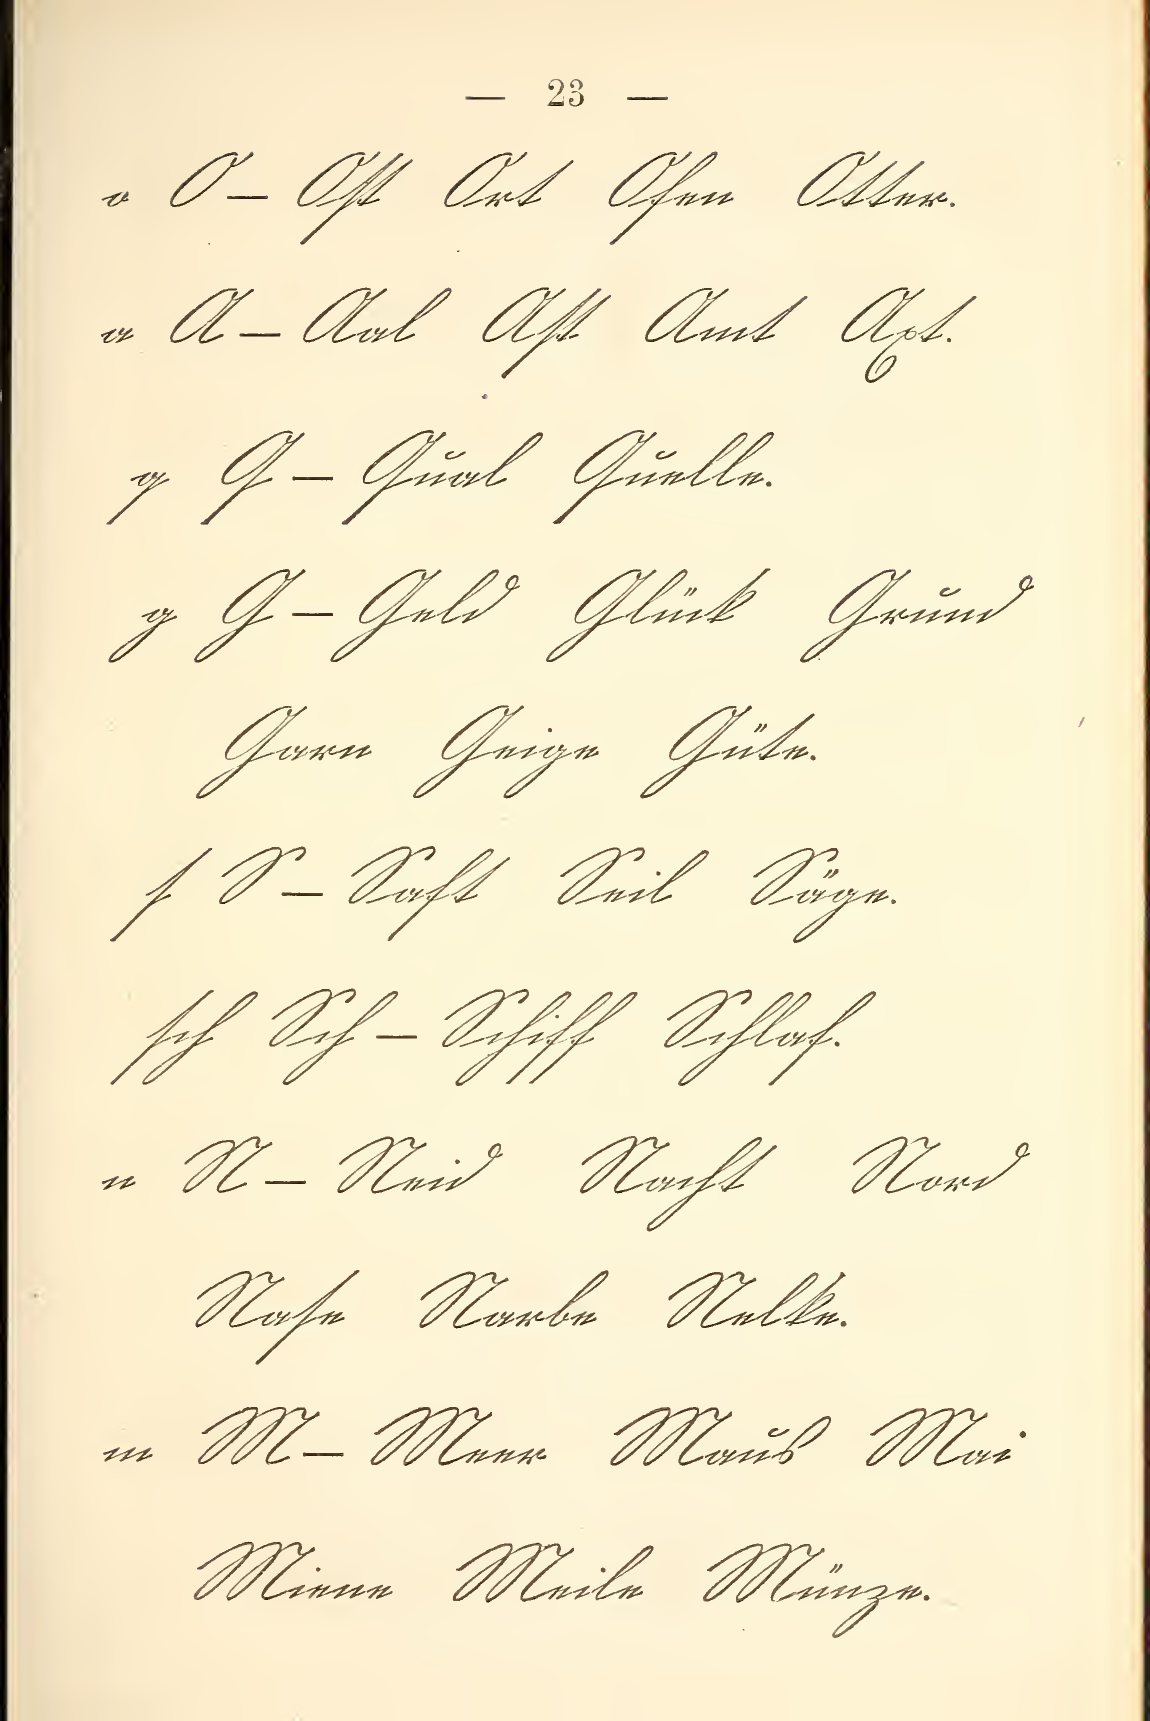 — 23 —
o O — Ost Ort Ofen Otter.
a A — Aal Ast Amt Axt.
q Q — Qual Quelle.
g G — Geld Glück Grund
Garn Geige Güte.
s S — Saft Seil Säge.
sch Sch — Schiff Schlaf.
n N — Neid Nacht Nord
Nase Narbe Nelke.
m M — Meer Maus Mai
Miene Meile Münze.